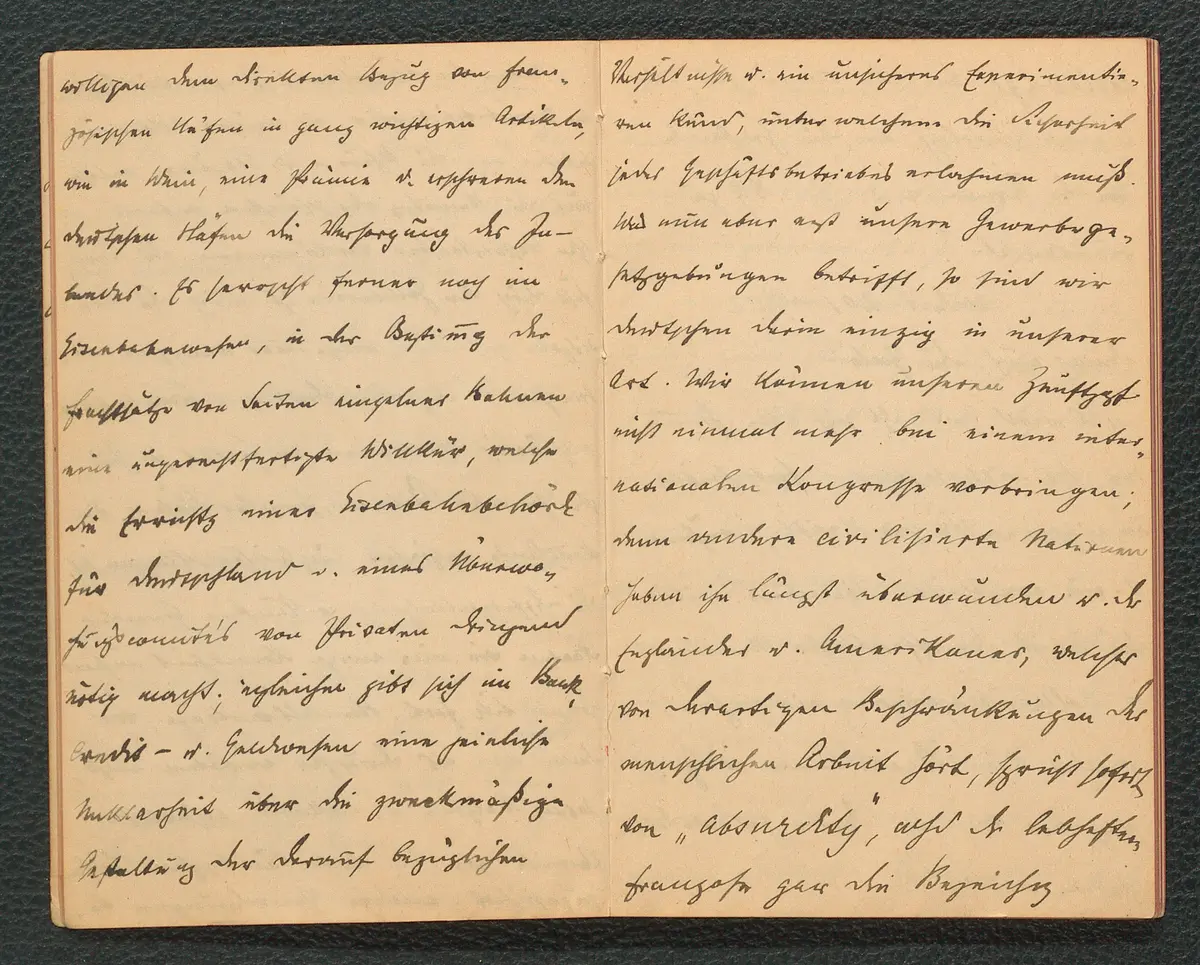 willigen dem direkten Bezug von fran-
zösischen Häfen in ganz wichtigen Artikeln,
wie in Wein, eine Prämie u. erschweren den
deutschen Häfen die Versorgung des In-
landes. Es herrscht ferner noch im
Eisenbahnwesen, in der Bestimg der
Frachtsätze von Seiten einzelner Bahnen
eine ungerechtfertigte Willkür, welche
die Errichtg einer Eisenbahnbehörde
für Deutschland u. eines Überwa-
chugscomités von Privaten dringend
nötig macht; ingleichen gibt sich im Bank,
Credit- u. Geldwesen eine peinliche
Unklarheit über die zweckmäßige
Gestaltung der darauf bezüglichen
Verhältnisse u. ein unsicheres Experimentie-
ren kund, unter welchem die Sicherheit
jedes Geschäftsbetriebes erlahmen muß.
Was nun aber erst unsere Gewerbege-
setzgebungen betrifft, so sind wir
Deutschen darin einzig in unserer
Art. Wir können unseren Zunftzopf
nicht einmal mehr bei einem inter-
nationalen Kongresse vorbringen;
denn andere civilisierte Nationen
haben ihn längst überwunden u. der
Engländer u. Amerikaner, welcher
von derartigen Beschränkungen der
menschlichen Arbeit hört, spricht sofort
von „absurdity", der lebhaftere
Franzose gar die Bezeichg